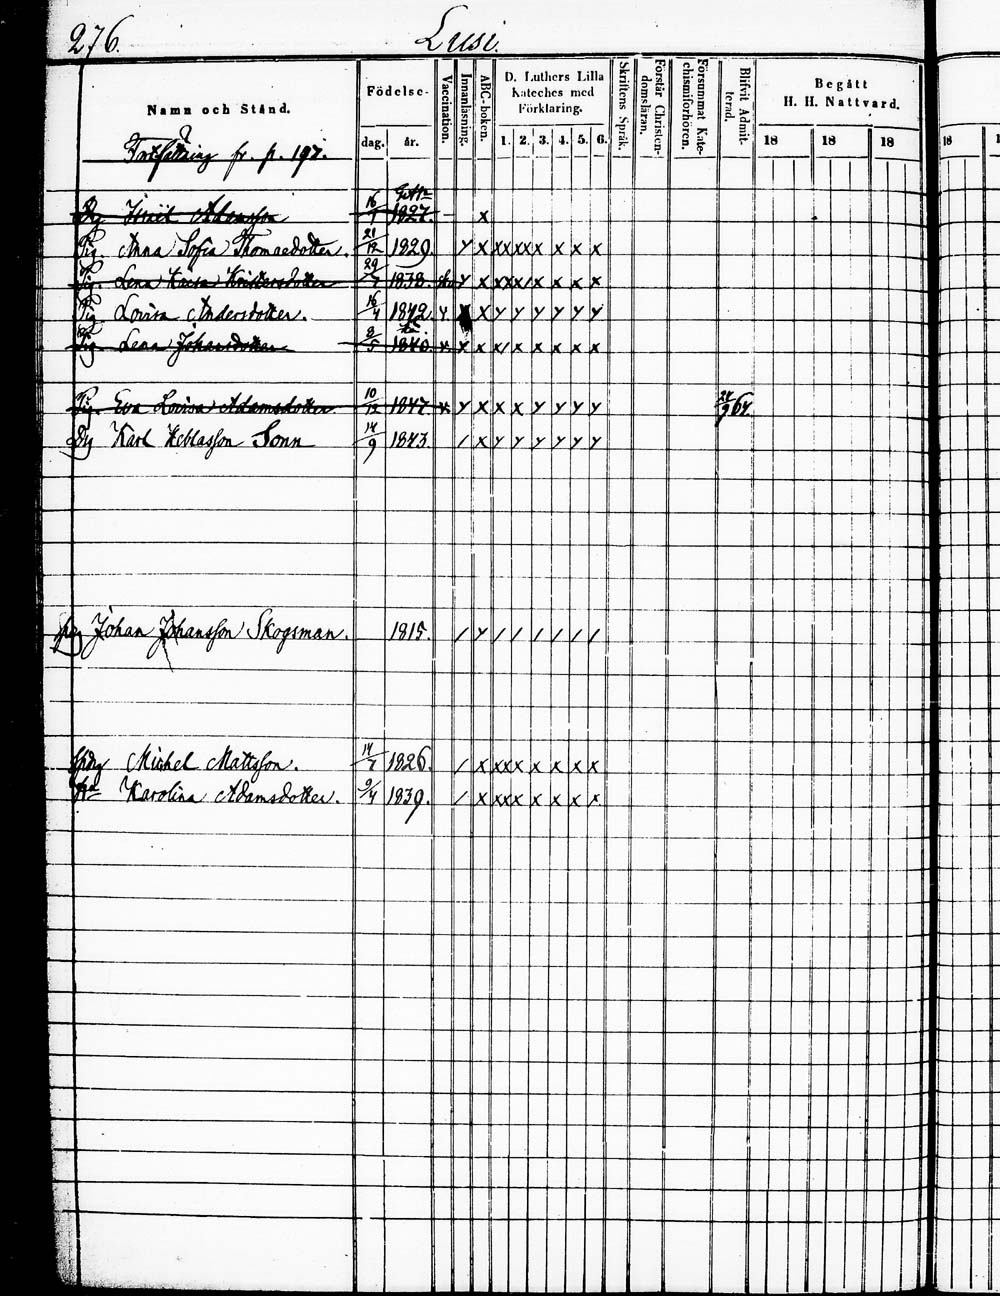 276. Lusi.
Namn och Stånd.
Födelse-
dag. år.
Vaccination.
Innanläsning.
ABC-boken.
D. Luthers Lilla
Kateches med
Förklaring.
1. 2. 3. 4. 5. 6.
Skriftens Språk.
Förstår Christen-
domsläran.
Försummat Kate-
chismiförhören.
Blifvit Admit-
terad.
Begått
H. H. Nattvard.
18 18 18 18
Fortsättning fr. p. 197.
Dg Adamsson 16 1827 x
Pig. Anna Sofia Thomaedotter. 21/12 1829. y x x x x x x x x x
Pig. Lena Kaisa Kristersdotter 29 1838. y x x x x / x x x x
Pig Lovisa Andersdotter. 16/4 1842. y x y y y y y y
Pig Lena Johansdotter 8/5 1840. x x x / x x x x x
Pig. Eva Lovisa Adamsdotter 10/12 1847. x y x x x y y y y 24/9 64.
Dg Karl Sonn 14/9 1843. / x y y y y y y
Johan Johansson Skogsman. 1815. / y / / / / / /
Michel Mattsson. 14/7 1826. / x x x x x x x x
Karolina Adamsdotter. 9/4 1839. / x x x x x x x x